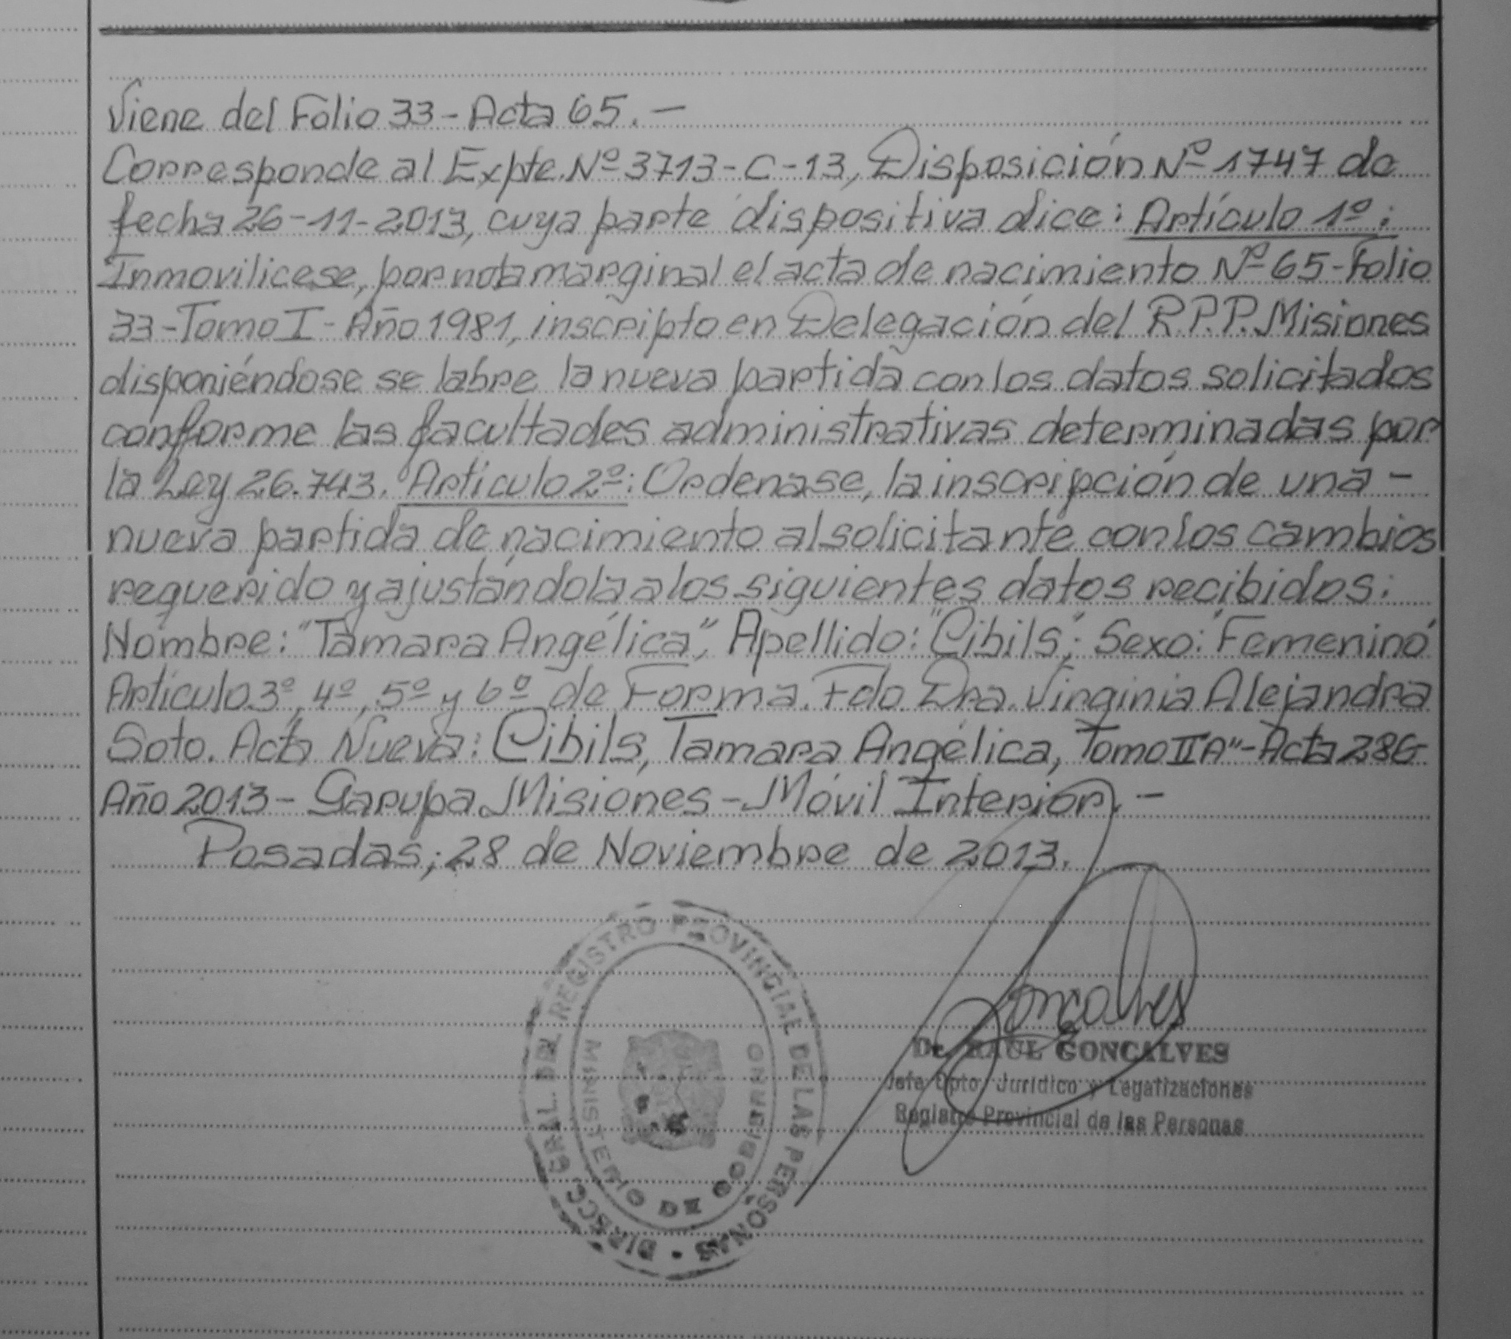 Viene del Folio 33 - Acta 65. -
Corresponde al Expte. Nº 3713-C-13, Disposición Nº 1747 de
fecha 26-11-2013, cuya parte dispositiva dice: Artículo 1º:
Inmovilicese, por nota marginal el acta de nacimiento Nº 65-Folio
33-Tomo I - Año 1981, inscripto en Delegación del R.P.P. Misiones
disponiéndose se labre la nueva partida con los datos solicitados
conforme las facultades administrativas determinadas por
la Ley 26.743. Artículo 2º: Ordenase, la inscripción de una -
nueva partida de nacimiento al solicitante con los cambios
requerido y ajustándola a los siguientes datos recibidos:
Nombre: "Tamara Angélica", Apellido: "Cibils"; Sexo: "Femenino"
Artículo 3º, 4º, 5º y 6º de Forma. Fdo Dra. Virginia Alejandra
Soto. Acta Nueva: Cibils, Tamara Angélica, Tomo II A" - Acta 286
Año 2013 - Garupa Misiones - Móvil Interior. -
Posadas; 28 de Noviembre de 2013.
DIRECC. GRAL. DEL REGISTRO PROVINCIAL DE LAS PERSONAS
MINISTERIO DE GOBIERNO
Goncalves
Dr. RAUL GONCALVES
Jefe Dpto. Jurídico y Legalizaciones
Registro Provincial de las Personas